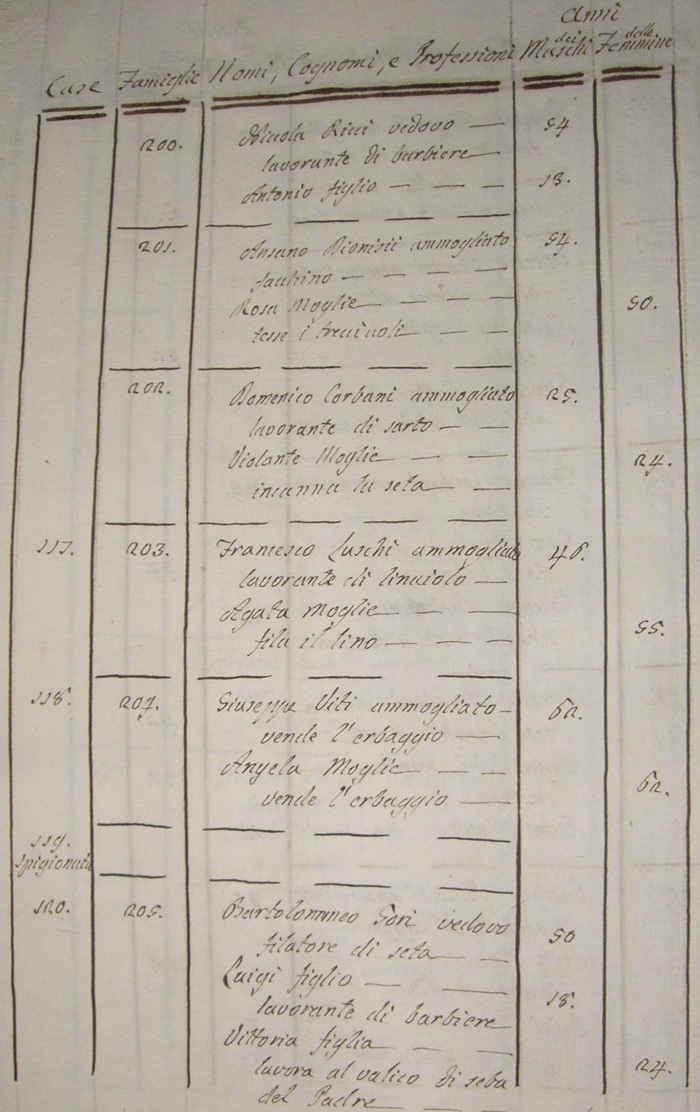 Anni
Case Famiglie Nomi, Cognomi, e Professioni dei Maschi delle Femmine
200. Niccola Ricci vedovo — 54
lavorante di barbiere —
Antonio figlio — — — 13.
201. Ansano Dionisii ammogliato 54.
facchino — — — —
Rosa Moglie — — — 50.
tesse i trecciuoli — —
202. Domenico Corbani ammogliato 25.
lavorante di sarto — —
Violante Moglie — — 24.
incanna la seta — —
117. 203. Francesco Luschi ammogliato 46.
lavorante di linaiolo —
Agata Moglie — — —
fila il lino — — — 55.
118. 204. Giuseppe Viti ammogliato — 62.
vende l'erbaggio —
Angela Moglie — — 62.
vende l'erbaggio —
119.
spigionata
120. 205. Bartolommeo Gori vedovo
filatore di seta — — 50
Luigi figlio — —
lavorante di barbiere 18.
Vittoria figlia — —
lavora al valico di seta 24.
del Padre — —